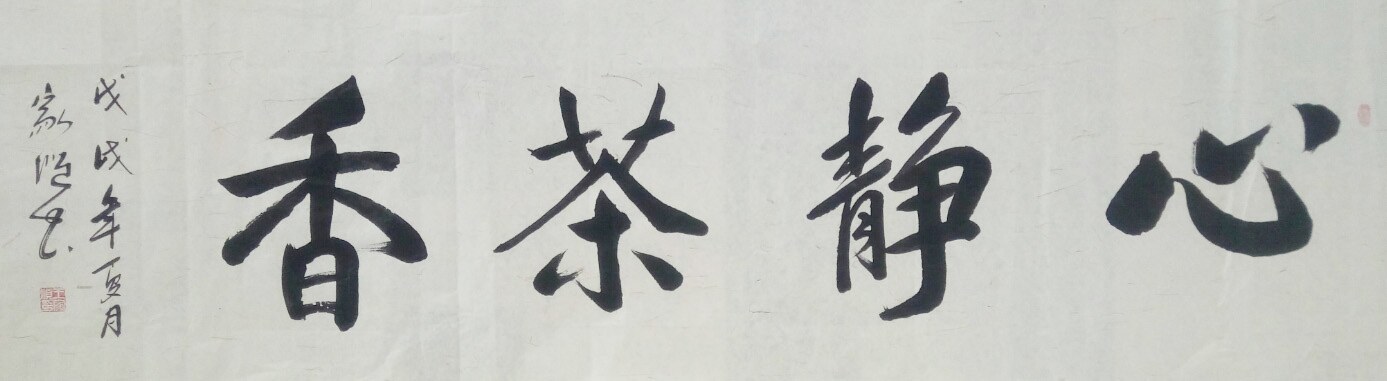 心静茶香
戊戌年夏月
家顺书